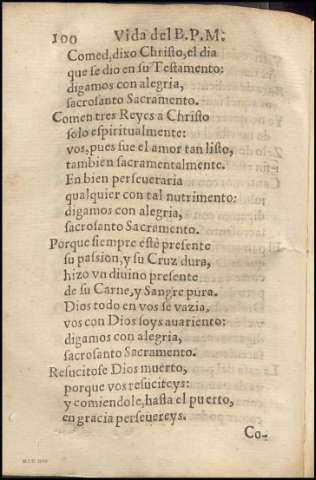 100 Vida del B.P.M.
Comed, dixo Christo, el dia
que se dio en su Testamento:
digamos con alegria,
sacrosanto Sacramento.
Comen tres Reyes a Christo
solo espiritualmente:
vos, pues fue el amor tan listo,
tambien sacramentalmente.
En bien perseueraria
qualquier con tal nutrimento:
digamos con alegria,
sacrosanto Sacramento.
Porque siempre estè presente
su passion, y su Cruz dura,
hizo vn diuino presente
de su Carne, y Sangre pura.
Dios todo en vos se vazia,
vos con Dios soys auariento:
digamos con alegria,
sacrosanto Sacramento.
Resucitose Dios muerto,
porque vos resuciteys:
y comiendole, hasta el puerto,
en gracia perseuereys.
Co-